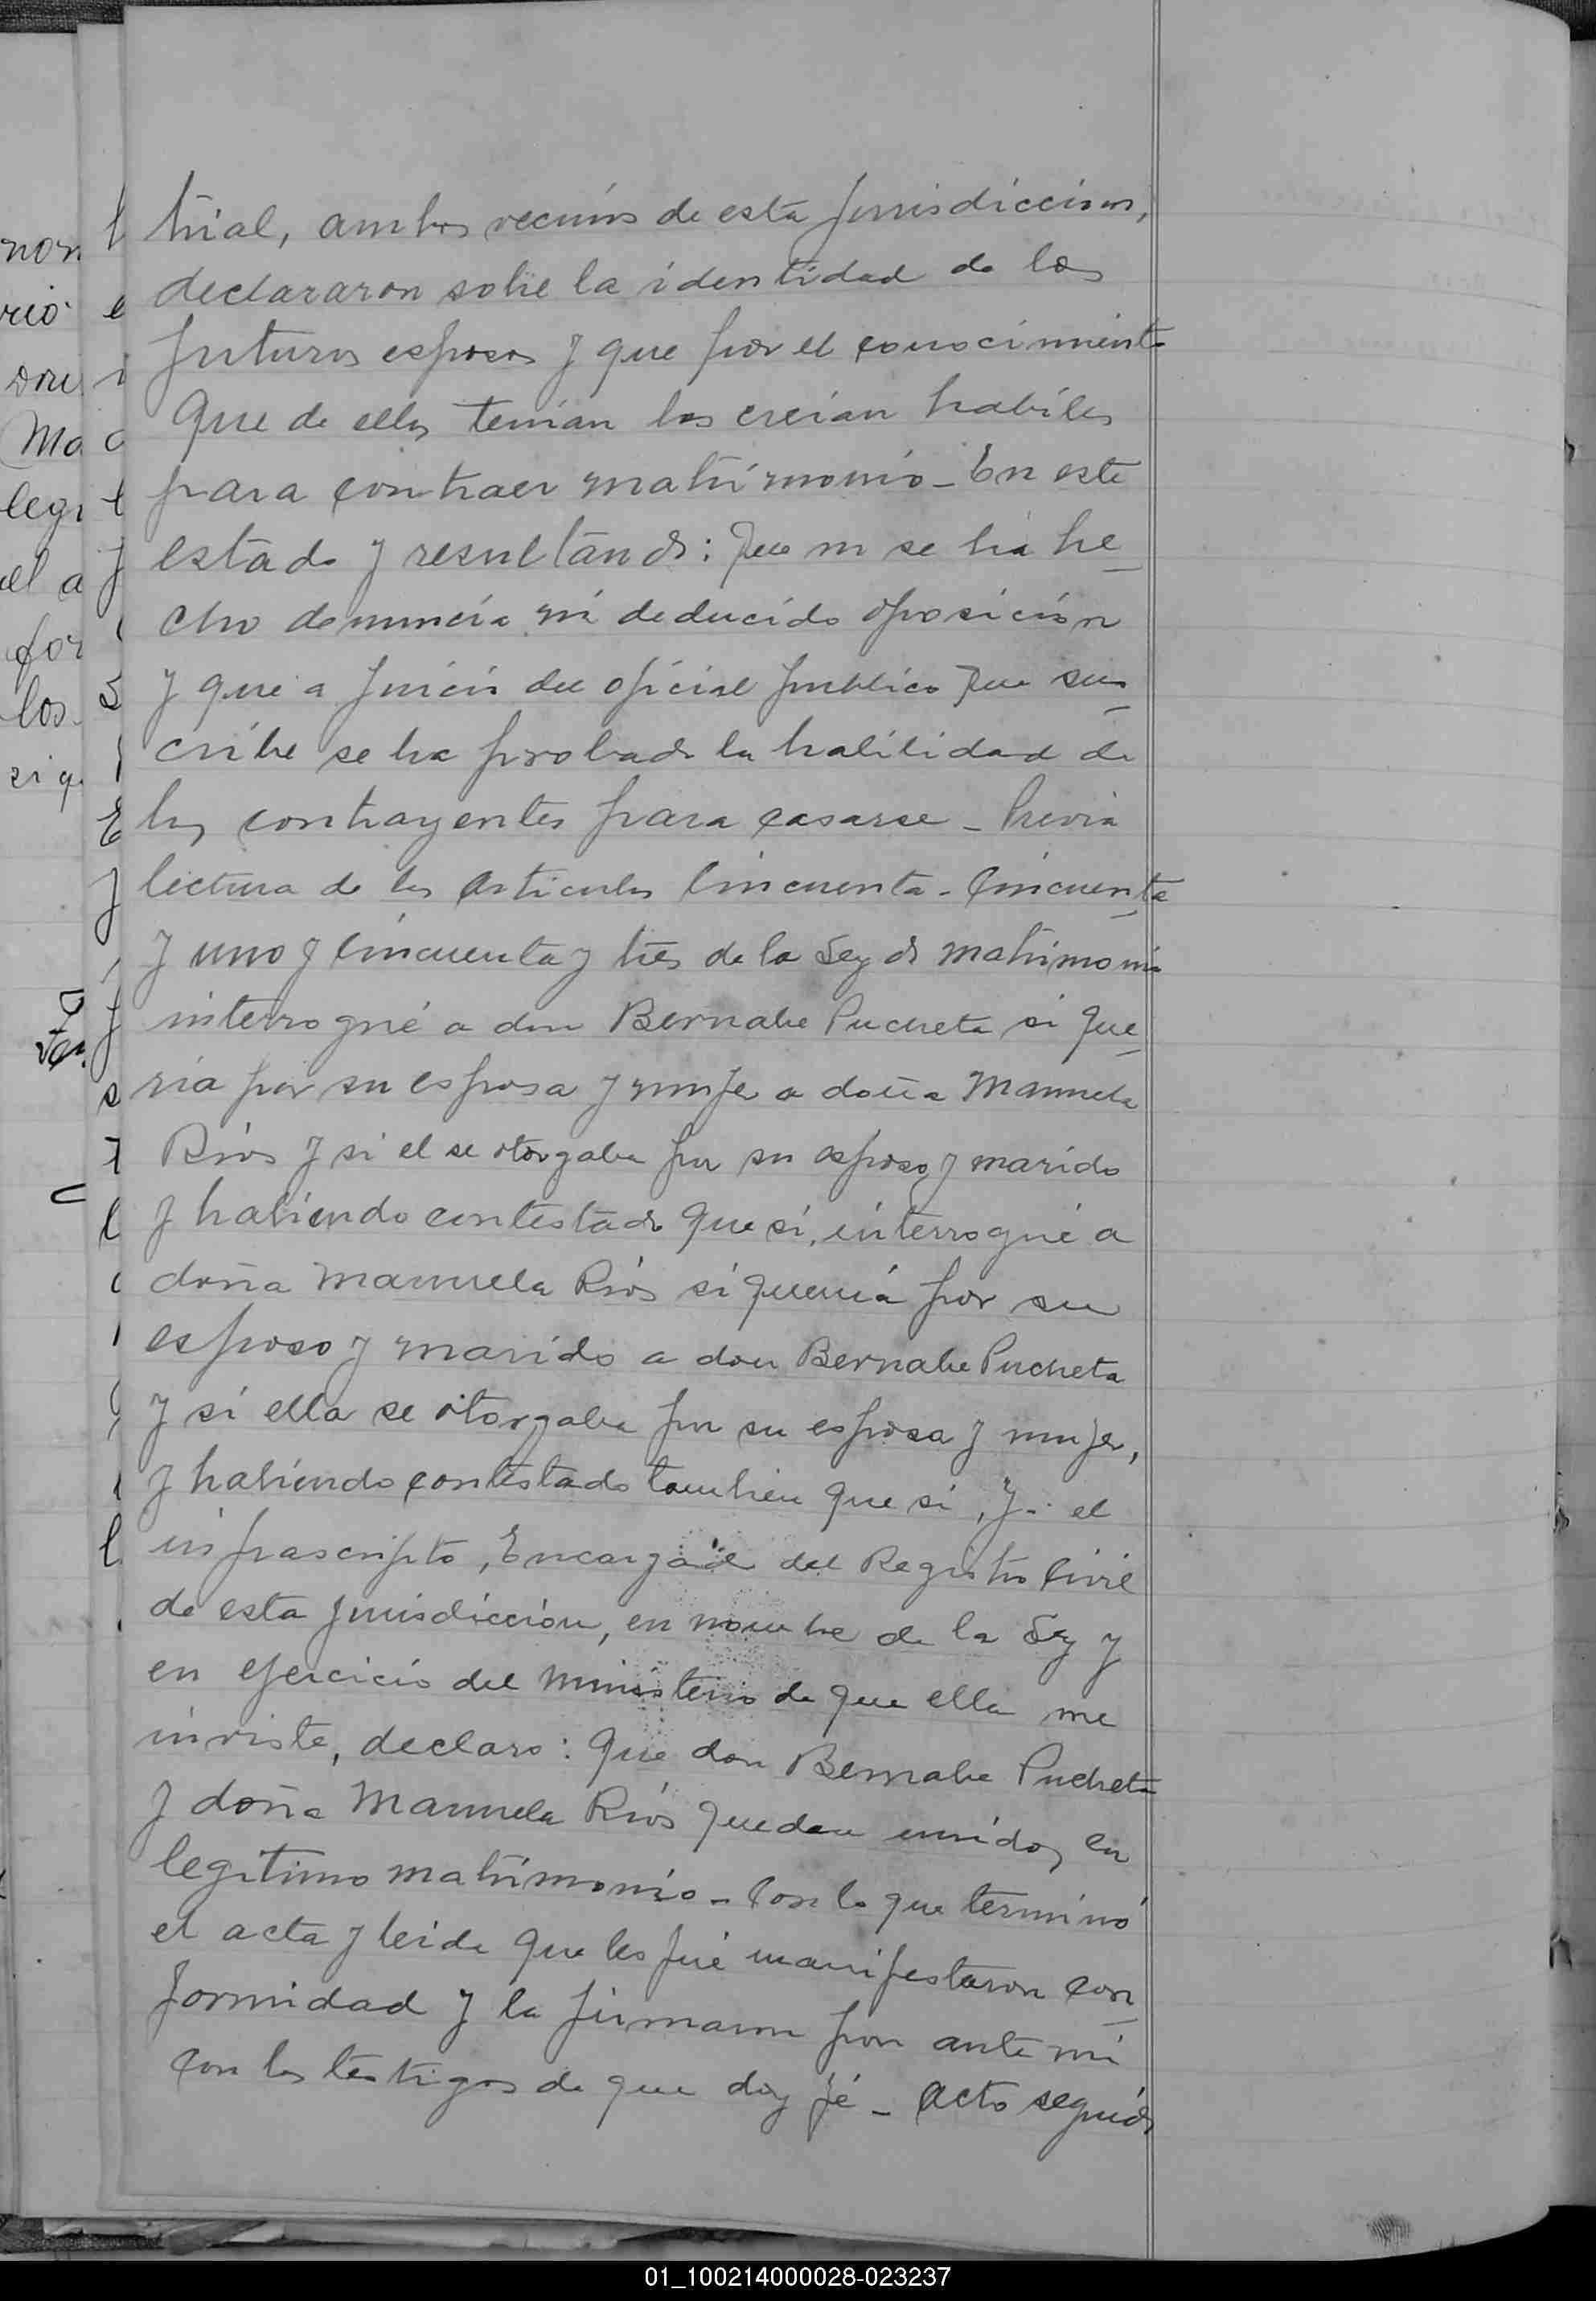 trial, ambos vecinos de esta jurisdiccion,
declararon sobre la identidad de los
futuros esposos y que por el conocimiento
que de ellos tenían los creian habiles
para contraer matrimonio - En este
estado y resultando: que no se ha he-
cho denuncia ni deducido oposición
y que a juicio del oficial publico que sus-
cribe se ha probado la habilidad de
los contrayentes para casarse - Previa
lectura de los articulos cincuenta - cincuenta
y uno y cincuenta y tres de la Ley de matrimonio
interrogué a don Bernabe Pucheta si que-
ria por su esposa y mujer a doña Manuela
Ríos y si el se otorgaba por su esposo y marido
y habiendo contestado que sí, interrogué a
doña Manuela Ríos si quería por su
esposo y marido a don Bernabe Pucheta
y si ella se otorgaba por su esposa y mujer,
y habiendo contestado tambien que si, Yo el
infrascripto, Encargado del Registro Civil
de esta jurisdicción, en nombre de la Ley y
en ejercicio del ministerio de que ella me
inviste, declaro: que don Bernabe Pucheta
y doña Manuela Ríos quedan unidos en
legitimo matrimonio - Con lo que terminó
el acta y leida que les fué manifestaron con-
formidad y la firmaron por ante mi
con los testigos de que doy fé - Acto seguido
01_100214000028-023237